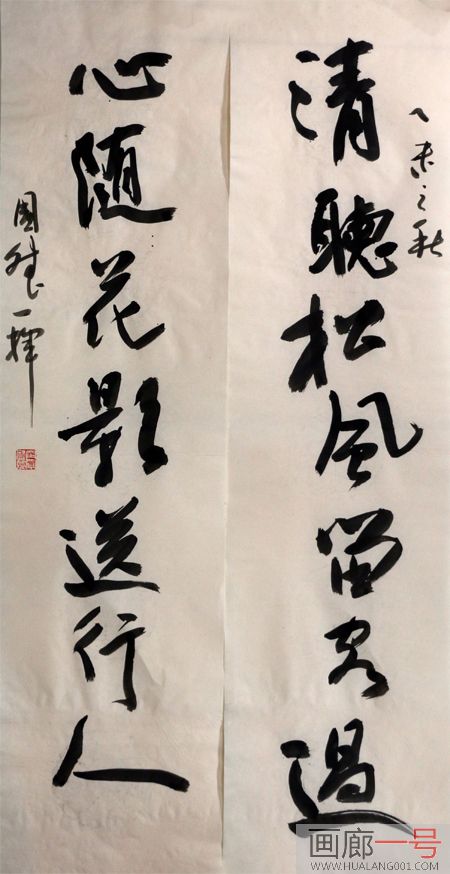 乙未之秋
清聽松風留客過
心随花影送行人
國 一揮
画廊一号
WWW.HUALANG001.COM